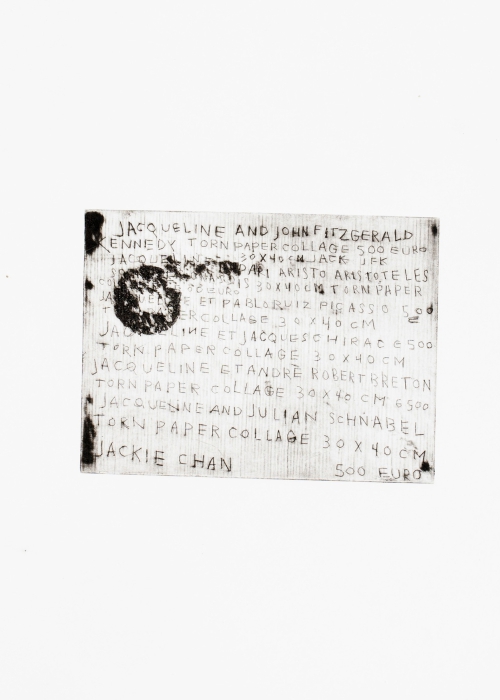 JACQUELINE AND JOHN FITZGERALD
KENNEDY TORN PAPER COLLAGE 500 EURO
JACQUELINE 30X40CM JACK JFK
ARISTO ARISTOTELES
30X40CM TORN PAPER
ET PABLO RUIZ PICASSO 500
COLLAGE 30X40 CM €
ET JACQUES CHIRAC €500
TORN PAPER COLLAGE 30X40 CM
JACQUELINE ET ANDRE ROBERT BRETON
TORN PAPER COLLAGE 30X40 CM €500
JACQUELINE AND JULIAN SCHNABEL
TORN PAPER COLLAGE 30X40CM
JACKIE CHAN 500 EURO